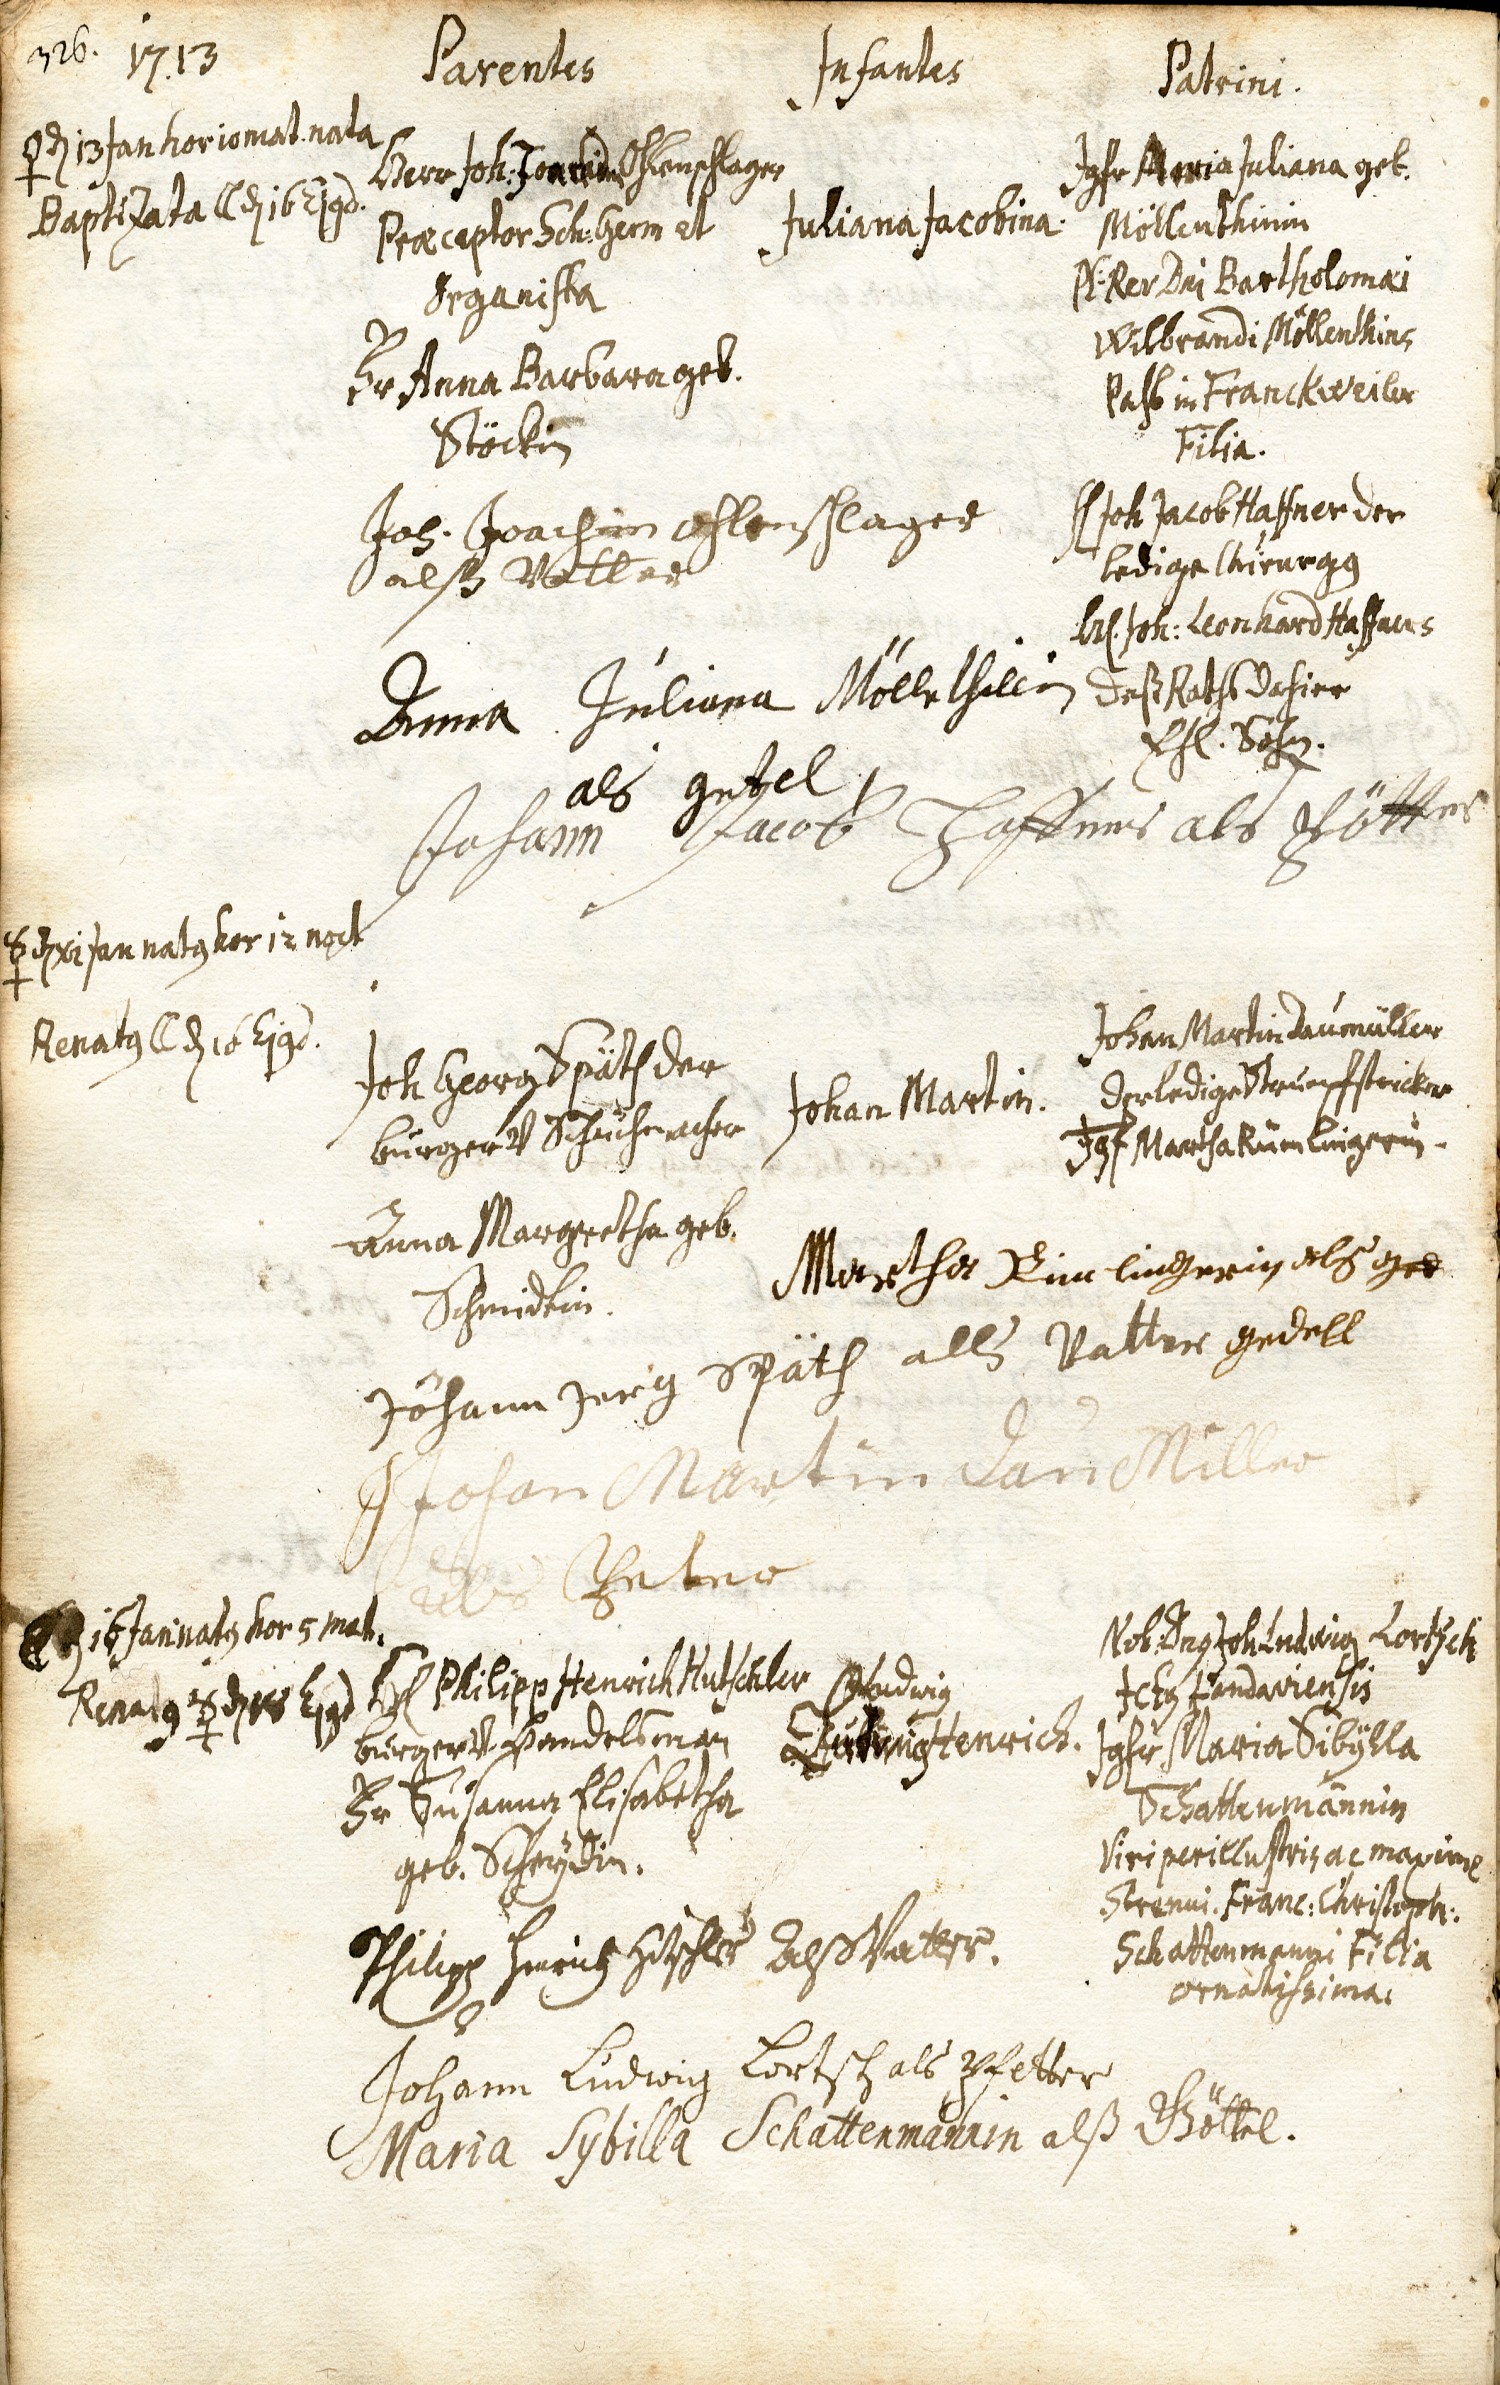 326. 1713 Parentes Infantes Patrini.
♀ d 13 Jan hor 10 mat. nata
Baptizata ☾ d 16 Ejgd.
Herr Joh: Joachim Ohlenschlager
Præceptor Sch: Germ et
Organista
Fr Anna Barbara geb.
Stöckin
Juliana Jacobina.
Jgfr Maria Juliana geb.
Möllenthinin
Pl: Rev Dni Bartholomæi
Wilbrandi Möllenthins
Past in Franckweiler
Filia.
H Joh Jacob Haffner der
ledige Chirurgg
Joh: Leonhard Haffners
deß Raths dahier
Ehl. Sohn.
Joh. Joachim Ohlenschlager
alß Vatter
Anna Juliana Möllethillin
als getel
Johann Jacob Haffner als Pötter
☿ d xi Jan natg hor 12 noct
Renatg ☾ d 16 Ejgd.
Joh Georg Späth der
burger v Schuhmacher
Anna Margretha geb.
Schmidtin.
Johan Martin.
Johan Martin Daumüller
der ledige Strumpfstricker
Jgf Martha Rümlingerin.
Martha Rimlingerin als ged
Johann Jerig Späth alls Vatter gedell
Johan Martin Dau Miller
als Peter
☾ d 16 Jan natg hor 5 mat.
Renatg ☿ d 18 Ejgd
Philipp Henrich Hutschler
burger v Handelsman
Fr Susanna Elisabetha
geb. Scheydin.
Ludwig
Ludwig Henrich.
Nob. Dng Joh Ludwig Lortsch
Jctg Landaviensis
Jgfr Maria Sibÿlla
Schattenmännin
Viri perillustris ac maxime
Strenui. Franc: Christoph:
Schattenmanni Filia
ornatissima.
Philipp Henrich Hitschler alß Vatter.
Johann Ludwig Lortsch als Pfetter
Maria Sybilla Schattenmännin alß Göttel.